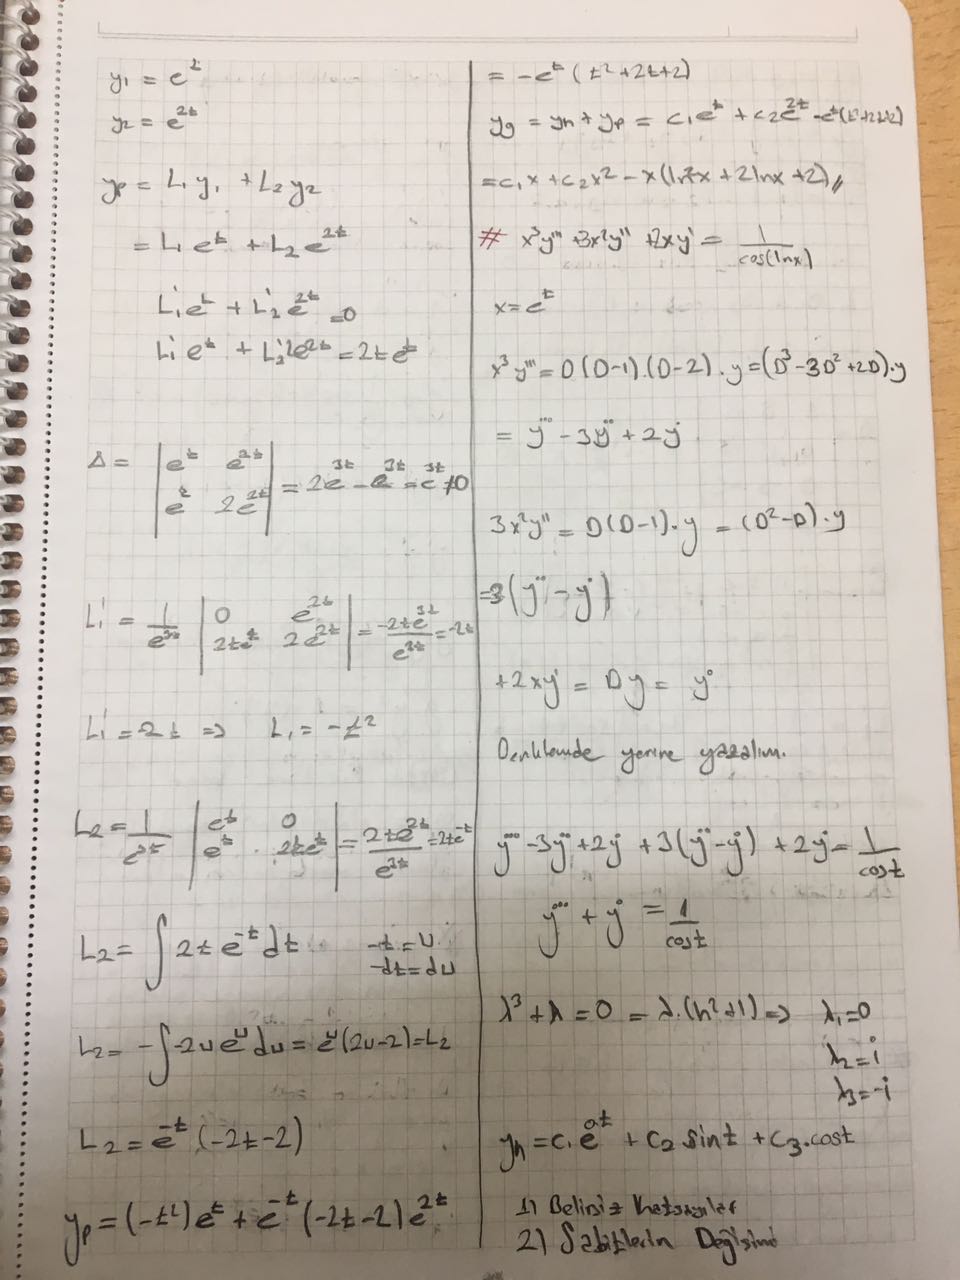 y₁ = e^t
y₂ = e^2t
yp = L₁ y₁ + L₂ y₂
= L₁ e^t + L₂ e^2t
L₁' e^t + L₂' e^2t = 0
L₁' e^t + L₂' 2e^2t = 2t e^t
Δ = | e^t e^2t ; e^t 2e^2t | = 2e^3t - e^3t = e^3t ≠ 0
L₁' = 1/e^3t | 0 e^2t ; 2te^t 2e^2t | = -2te^3t / e^3t = -2t
L₁' = -2t => L₁ = -t²
L₂ = 1/e^3t | e^t 0 ; e^t 2te^t | = 2te^2t / e^3t = 2te^-t
L₂ = ∫ 2t e^-t dt -t = u
-dt = du
L₂ = -∫ -2u e^u du = e^u (2u-2) = L₂
L₂ = e^-t (-2t-2)
yp = (-t²) e^t + e^-t (-2t-2) e^2t
= -e^t (t²+2t+2)
yg = yh + yp = c₁e^t + c₂e^2t - e^t(t²+2t+2)
= c₁x + c₂x² - x(ln²x + 2lnx + 2)//
# x³y''' + 3x²y'' + 2xy' = 1/cos(lnx)
x = e^t
x³y''' = D(D-1).(D-2).y = (D³-3D²+2D).y
= y⃛ - 3ÿ + 2ẏ
3x²y'' = D(D-1).y = (D²-D).y
= 3(ÿ - ẏ)
+2xy' = Dy = ẏ
Denklemde yerine yazalım.
y⃛ - 3ÿ + 2ẏ + 3(ÿ - ẏ) + 2ẏ = 1/cost
y⃛ + ẏ = 1/cost
λ³ + λ = 0 = λ.(λ²+1) => λ₁=0
λ₂=i
λ₃=-i
yh = c₁e^0t + c₂ sint + c₃.cost
1) Belirsiz Katsayılar
2) Sabitlerin Değişimi